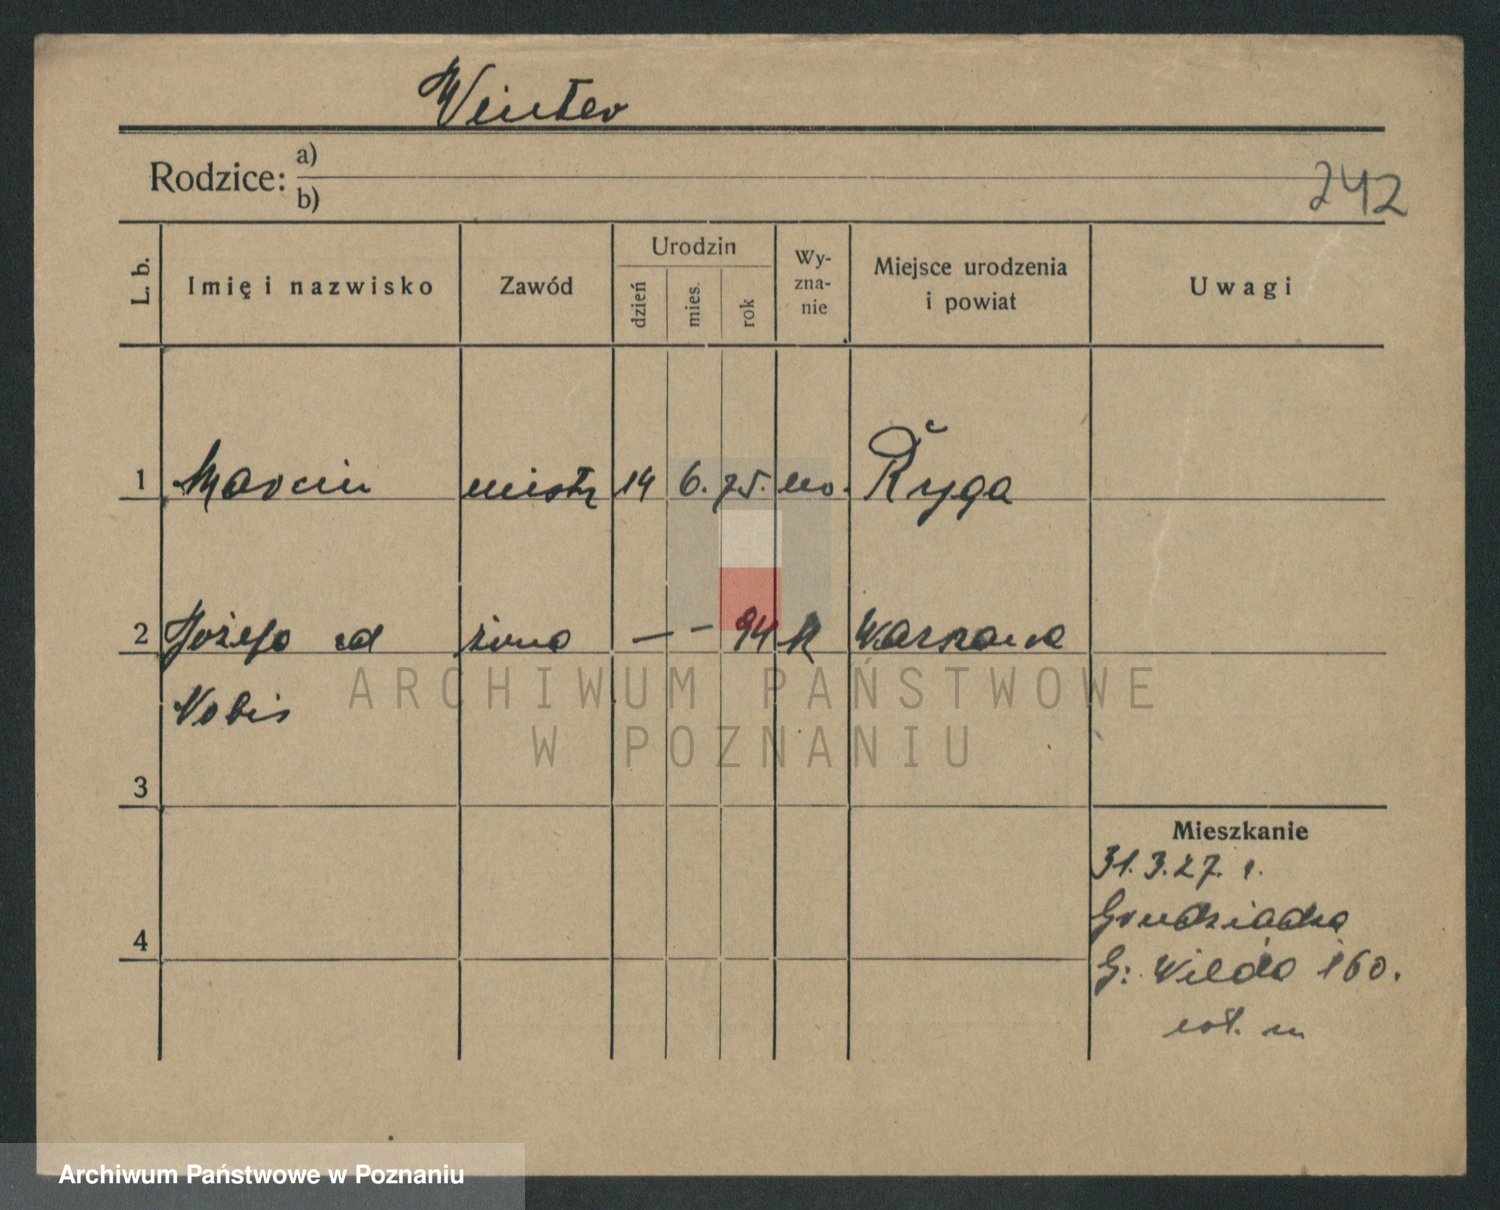 Winter
Rodzice: a)
b)
242
L. b.
Imię i nazwisko
Zawód
Urodzin
dzień
mies.
rok
Wy-
zna-
nie
Miejsce urodzenia
i powiat
Uwagi
1 Marcin mistrz 14 6. 75. Ryga
2 Józefa żona — — 94 k Warszawa
Nobis
3
4
Mieszkanie
31.3.27. r.
Grudziądza
G: Wilda 160.
ARCHIWUM PAŃSTWOWE
W POZNANIU
Archiwum Państwowe w Poznaniu